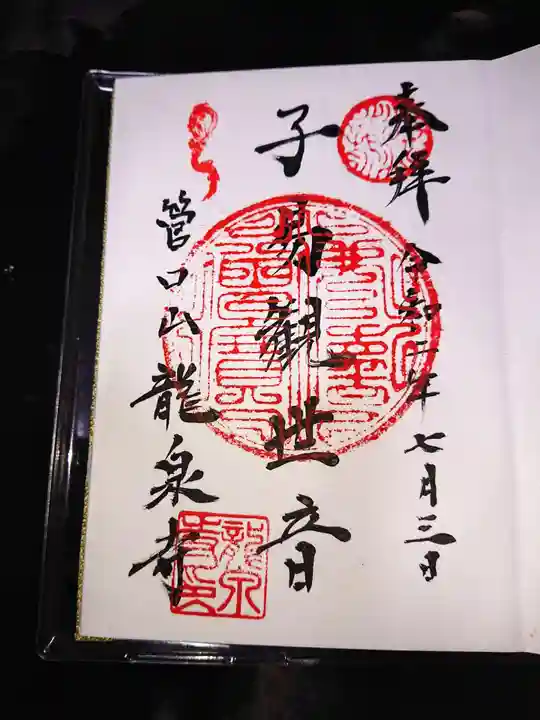 奉拝
令和二年七月三日
子易観世音
管口山
龍泉寺